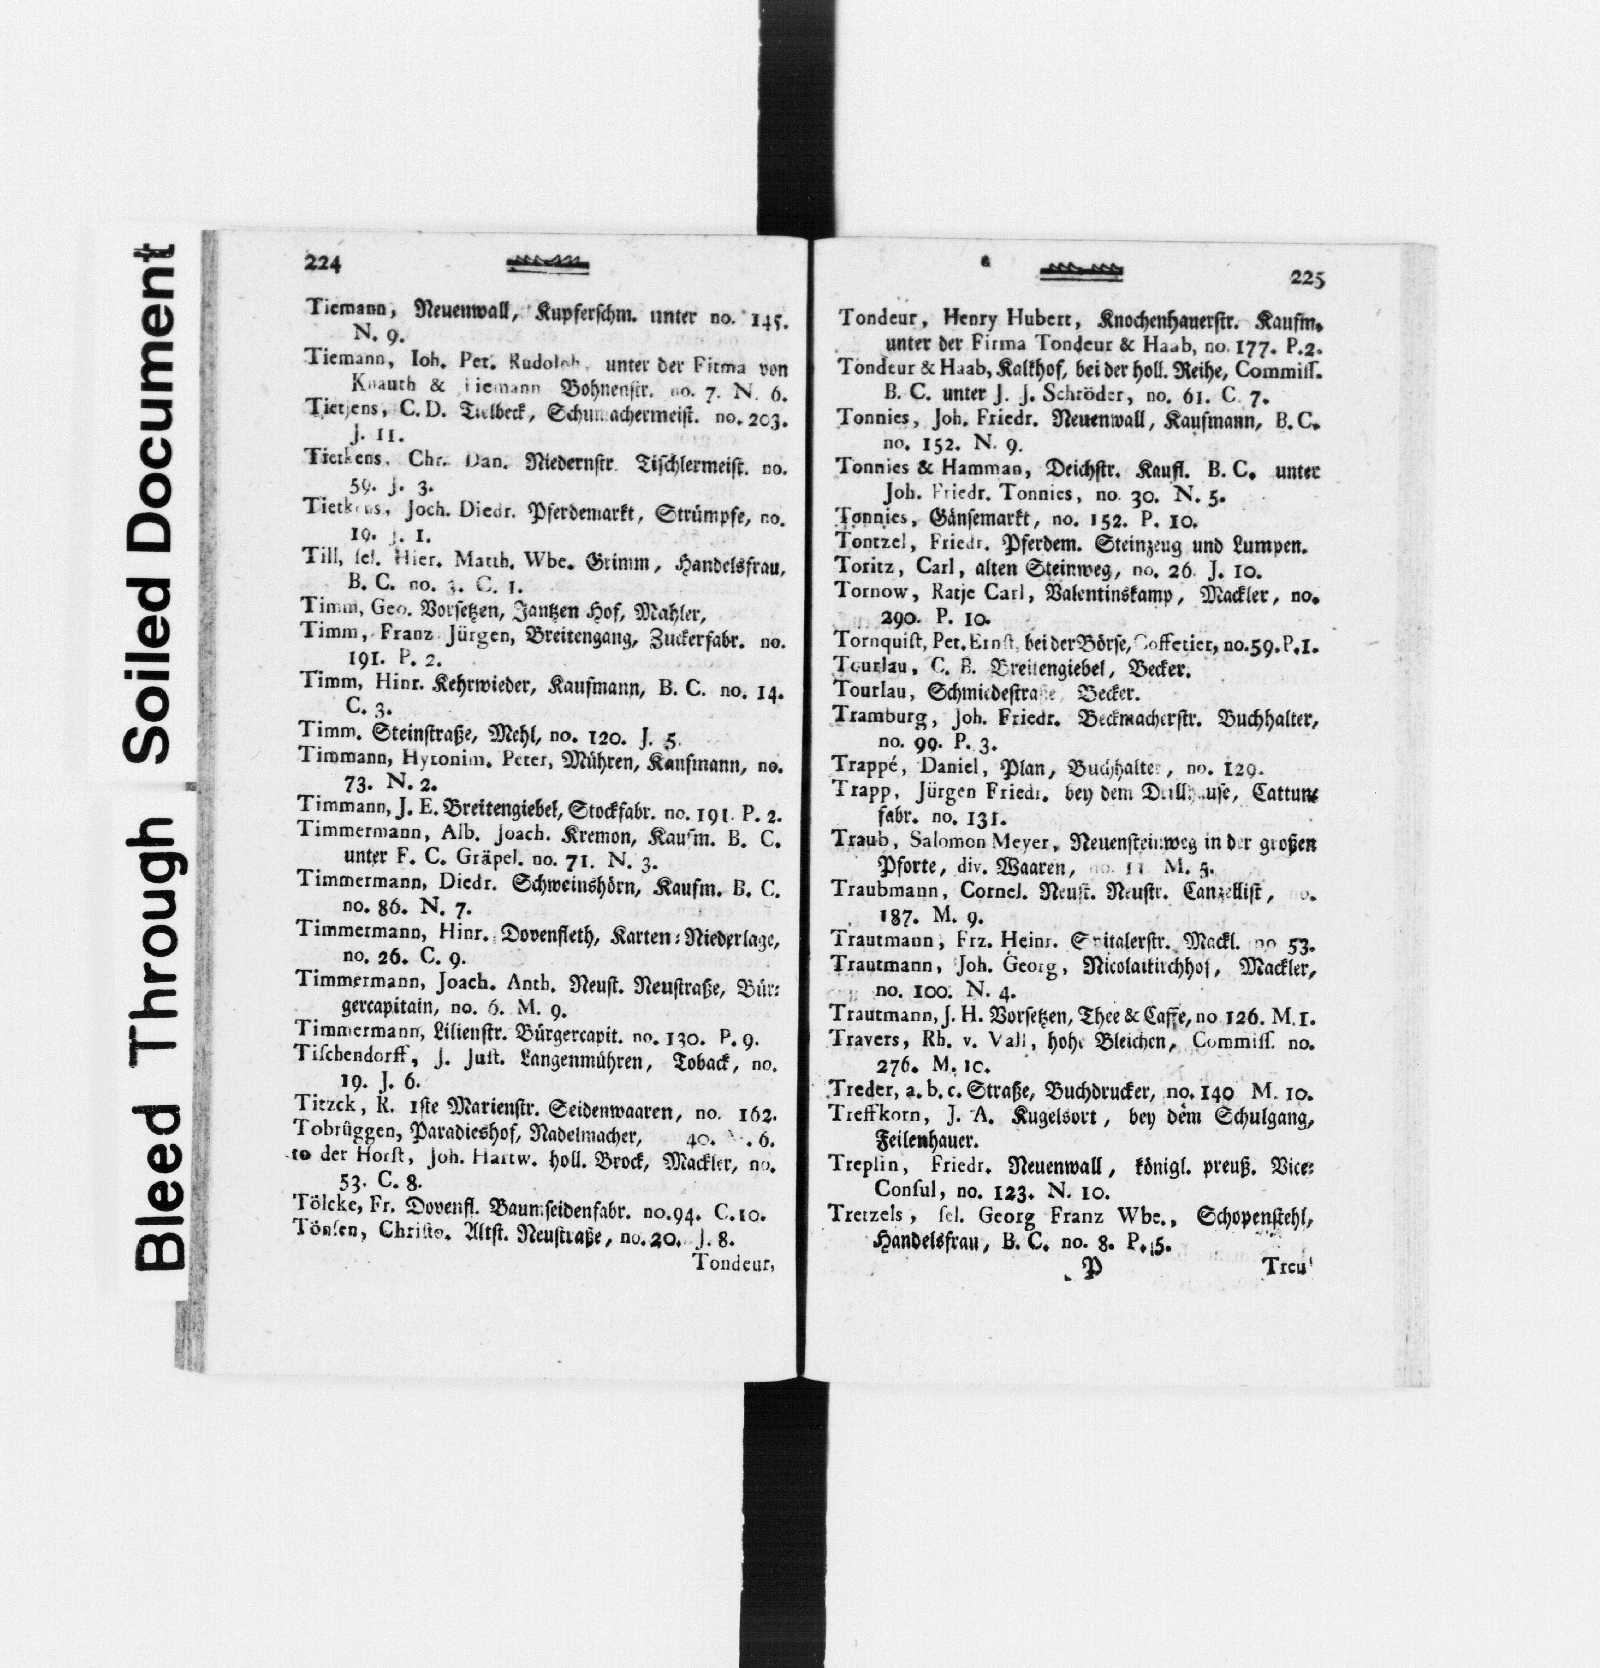 Bleed Through Soiled Document
224
Tiemann, Neuenwall, Kupferschm. unter no. 145.
N. 9.
Tiemann, Ioh. Pet. Rudolph, unter der Firma von
Knauth & Tiemann Bohnenstr. no. 7. N. 6.
Tietjens, C. D. Tielbeck, Schumachermeist. no. 203.
J. 11.
Tietkens, Chr. Dan. Niedernstr. Tischlermeist. no.
59. J. 3.
Tietkens, Joch. Diedr. Pferdemarkt, Strümpfe, no.
19. J. 1.
Till, sel. Hier. Matth. Wbe. Grimm, Handelsfrau,
B. C. no. 3. C. 1.
Timm, Geo. Vorsetzen, Jantzen Hof, Mahler,
Timm, Franz Jürgen, Breitengang, Zuckerfabr. no.
191. P. 2.
Timm, Hinr. Kehrwieder, Kaufmann, B. C. no. 14.
C. 3.
Timm. Steinstraße, Mehl, no. 120. J. 5.
Timmann, Hyronim. Peter, Mühren, Kaufmann, no.
73. N. 2.
Timmann, J. E. Breitengiebel, Stockfabr. no. 191. P. 2.
Timmermann, Alb. Joach. Kremon, Kaufm. B. C.
unter F. C. Gräpel. no. 71. N. 3.
Timmermann, Diedr. Schweinshörn, Kaufm. B. C.
no. 86. N. 7.
Timmermann, Hinr. Dovenfleth, Karten-Niederlage,
no. 26. C. 9.
Timmermann, Joach. Anth. Neust. Neustraße, Bür-
gercapitain, no. 6. M. 9.
Timmermann, Lilienstr. Bürgercapit. no. 130. P. 9.
Tischendorff, J. Just. Langenmühren, Toback, no.
19. J. 6.
Titzck, R. 1ste Marienstr. Seidenwaaren, no. 162.
Tobrüggen, Paradieshof, Nadelmacher, 40. . 6.
to der Horst, Joh. Hartw. holl. Brock, Mackler, no.
53. C. 8.
Tölcke, Fr. Dovenfl. Baumseidenfabr. no. 94. C. 10.
Tönsen, Christo. Altst. Neustraße, no. 20. J. 8.
Tondeur,
225
Tondeur, Henry Hubert, Knochenhauerstr. Kaufm.
unter der Firma Tondeur & Haab, no. 177. P. 2.
Tondeur & Haab, Kalkhof, bei der holl. Reihe, Commiss.
B. C. unter J. J. Schröder, no. 61. C. 7.
Tonnies, Joh. Friedr. Neuenwall, Kaufmann, B. C.
no. 152. N. 9.
Tonnies & Hamman, Deichstr. Kaufl. B. C. unter
Joh. Friedr. Tonnies, no. 30. N. 5.
Tonnies, Gänsemarkt, no. 152. P. 10.
Tontzel, Friedr. Pferdem. Steinzeug und Lumpen.
Toritz, Carl, alten Steinweg, no. 26. J. 10.
Tornow, Ratje Carl, Valentinskamp, Mackler, no.
290. P. 10.
Tornquist, Pet. Ernst, bei der Börse, Coffetier, no. 59. P. 1.
Tourlau, C. B. Breitengiebel, Becker.
Tourlau, Schmiedestraße Becker.
Tramburg, Joh. Friedr. Beckmacherstr. Buchhalter,
no. 99. P. 3.
Trappé, Daniel, Plan, Buchhalter, no. 129.
Trapp, Jürgen Friedr. bey dem Drillhause, Cattun-
fabr. no. 131.
Traub, Salomon Meyer, Neuensteinweg in der großen
Pforte, div. Waaren, no. 11 M. 5.
Traubmann, Cornel. Neust. Neustr. Canzellist, no.
187. M. 9.
Trautmann, Frz. Heinr. Spitalerstr. Mackl. no 53.
Trautmann, Joh. Georg, Nicolaikirchhof, Mackler,
no. 100. N. 4.
Trautmann, J. H. Vorsetzen, Thee & Caffe, no 126. M. 1.
Travers, Rh. v. Vall, hohe Bleichen, Commiss. no.
276. M. 10.
Treder, a. b. c. Straße, Buchdrucker, no. 140 M. 10.
Treffkorn, J. A. Kugelsort, bey dem Schulgang,
Feilenhauer.
Treplin, Friedr. Neuenwall, königl. preuß. Vice-
Consul, no. 123. N. 10.
Tretzels, sel. Georg Franz Wbe., Schopenstehl,
Handelsfrau, B. C. no. 8. P. 5.
P Treu